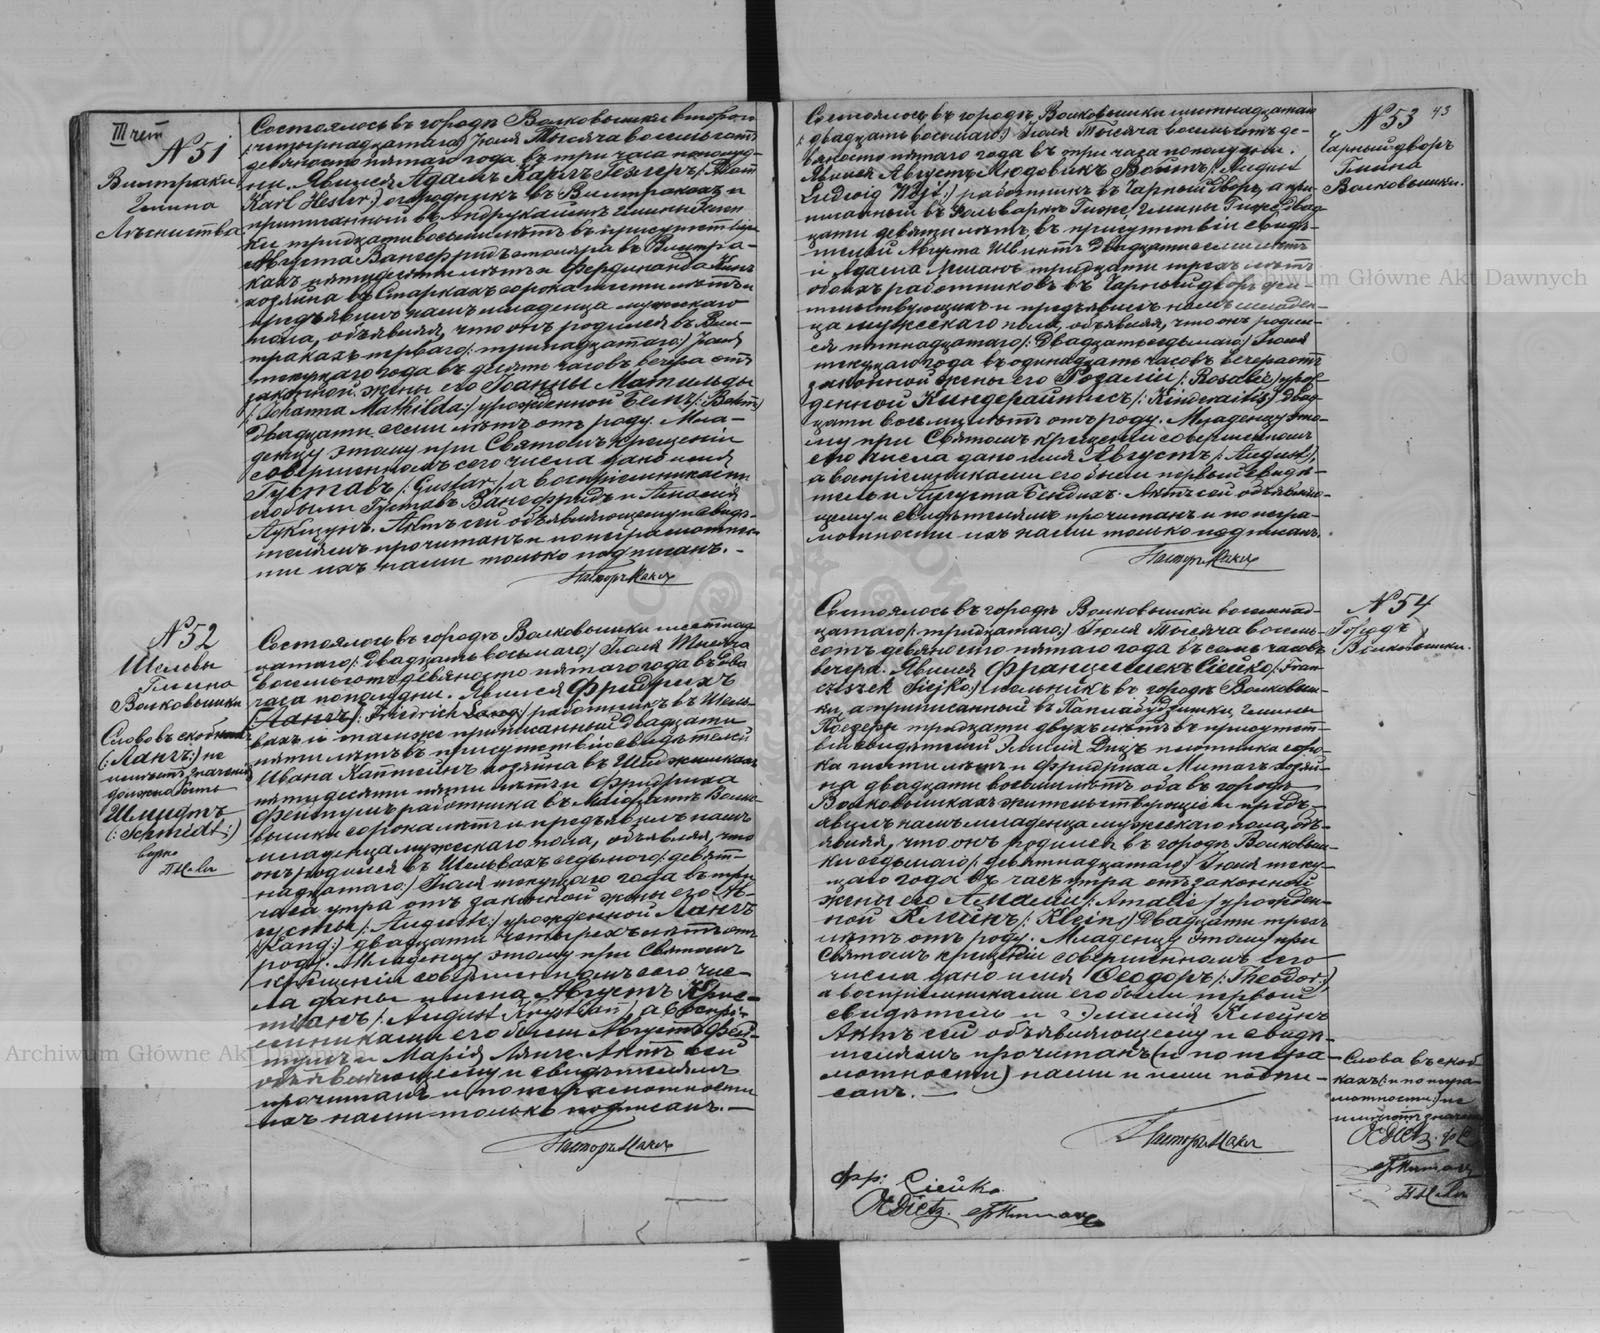 III чет
№ 51
Вилтраки
Гмина
Состоялось въ городѣ Волковышки второго
(:четырнадцатаго:) Іюля Тысяча восемьсотъ
девяносто пятаго года въ три часа пополуд-
ни. Явился Адамъ Карлъ Гезтеръ (: Adam
Karl Hester:) огородникъ въ Вилтракахъ и
приписанный въ
ки тридцати восьми лѣтъ въ присутствіи
Августа Вансфридъ столяра въ Вилтра-
кахъ пятидесяти лѣтъ и Фердинанда
хозяина въ Старкахъ сорока шести лѣтъ и
предъявилъ намъ младенца мужескаго
пола, объявляя, что онъ родился въ Вил-
тракахъ перваго (: тринадцатаго:) Іюля
текущаго года въ девять часовъ вечера отъ
законной жены его Іоанны Матильды
(: Johanna Mathilda:) урожденной
Двадцати семи лѣтъ отъ роду. Мла-
денцу этому при Святомъ крещеніи
совершенномъ сего числа дано имя
Густавъ (: Gustav:) а воспріемниками
его были Густавъ Вансфридъ и Амалія
Актъ сей объявляющему и свидѣ-
телямъ прочитанъ и по неграмотнос-
ти ихъ нами только подписанъ. -
Пасторъ
№ 52
Шельвы
Гмина
Волковышки
Слово въ скобкахъ
(: Лангъ:) не
имѣетъ значенія
должно быть
Шмидтъ
(: Schmidt:)
Состоялось въ городѣ Волковышки шестнад-
цатаго (: Двадцать восьмаго:) Іюля Тысяча
восемьсотъ девяносто пятаго года въ два
часа пополудни. Явился Фридрихъ
(Лангъ) (: Friedrich Lang:) работникъ въ Шель-
вахъ и тамже приписанный Двадцати
пяти лѣтъ въ присутствіи свидѣтелей
Ивана Каптейнъ хозяина въ
пятидесяти пяти лѣтъ и Фридриха
работника въ Волко-
вышки сорока лѣтъ и предъявилъ намъ
младенца мужескаго пола, объявляя, что
онъ родился въ Шельвахъ седьмого (: девят-
надцатаго:) Іюля текущаго года въ три
часа утра отъ законной жены его Ав-
густы (: August:) урожденной Лангъ
(: Lang:) двадцати четырехъ лѣтъ отъ
роду. Младенцу этому при Святомъ
крещеніи совершенномъ сего чис-
ла даны имена Августъ Крис-
тіанъ (: August Krystian:) а воспрі-
емниками его были Августъ
и Марія Лянге. Актъ сей
объявляющему и свидѣтелямъ
прочитанъ и по неграмотности
ихъ нами только подписанъ. —
Пасторъ
43
№ 53
Чарныйдворъ
Гмина
Волковышки.
Состоялось въ городѣ Волковышки шестнадцатаго
(: двадцать восьмаго:) Іюля Тысяча восемьсотъ де-
вяносто пятаго года въ три часа пополудни.
Явился Августъ Людовикъ Войтъ (: August
Ludwig Wojt:) работникъ въ Чарныйдворъ, а при-
писанный въ Фольваркъ Гиже, Гмины Гиже двад-
цати девяти лѣтъ, въ присутствіи свидѣ-
телей Августа Шмитъ Двадцати семи лѣтъ
и Адама тридцати трехъ лѣтъ
обоихъ работниковъ въ Чарныйдворъ жи-
тельствующихъ и предъявилъ намъ младен-
ца мужескаго пола, объявляя, что онъ родил-
ся пятнадцатаго (: Двадцатьседьмаго:) Іюля
текущаго года въ одинадцать часовъ вечера отъ
законной жены его Розаліи (: Rosalie:) урож-
денной Киндерайтисъ (: Kinderaitis:) Двад-
цати восьми лѣтъ отъ роду. Младенцу это-
му при Святомъ крещеніи совершенномъ
сего числа дано имя Августъ (: August:),
а воспріемниками его были первый свидѣ-
тель и Августа Бендихъ. Актъ сей объявляю-
щему и свидѣтелямъ прочитанъ и по негра-
мотности ихъ нами только подписанъ.
Пасторъ
№ 54
Городъ
Волковышки.
Состоялось въ городѣ Волковышки восемнад-
цатаго (: тридцатаго:) Іюля Тысяча восемь-
сотъ девяносто пятаго года въ семь часовъ
вечера. Явился Францишекъ Сейко (: Fran-
ciszek Siejko:) мельникъ въ городѣ Волковыш-
ки, а приписанный въ Гмины
тридцати двухъ лѣтъ въ присутст-
віи свидѣтелей Эмилія Дицъ плотника соро-
ка шести лѣтъ и Фридриха хозяи-
на двадцати восьми лѣтъ оба въ городѣ
Волковышкахъ жительствующіе и предъ-
явилъ намъ младенца мужескаго пола, объ-
являя, что онъ родился въ городѣ Волковыш-
ки седьмаго (: девятнадцатаго:) Іюля теку-
щаго года въ часъ утра отъ законной
жены его Амаліи (: Amalie:) урожден-
ной Клейнъ (: Klein:) Двадцати трехъ
лѣтъ отъ роду. Младенцу этому при
Святомъ крещеніи совершенномъ сего
числа дано имя Ѳеодоръ (: Theodor:)
а воспріемниками его были первый
свидѣтель и Эмилія Клейнъ
Актъ сей объявляющему и свидѣ-
телямъ прочитанъ (и по негра-
мотности) нами и ими подпи-
санъ. —
Слова въ скоб-
кахъ (: и по негра-
мотности:) не
имѣютъ значенія
Пасторъ
фр: Сіейко
Dietz
Archiwum Główne Akt Dawnych
Archiwum Główne Akt Dawnych